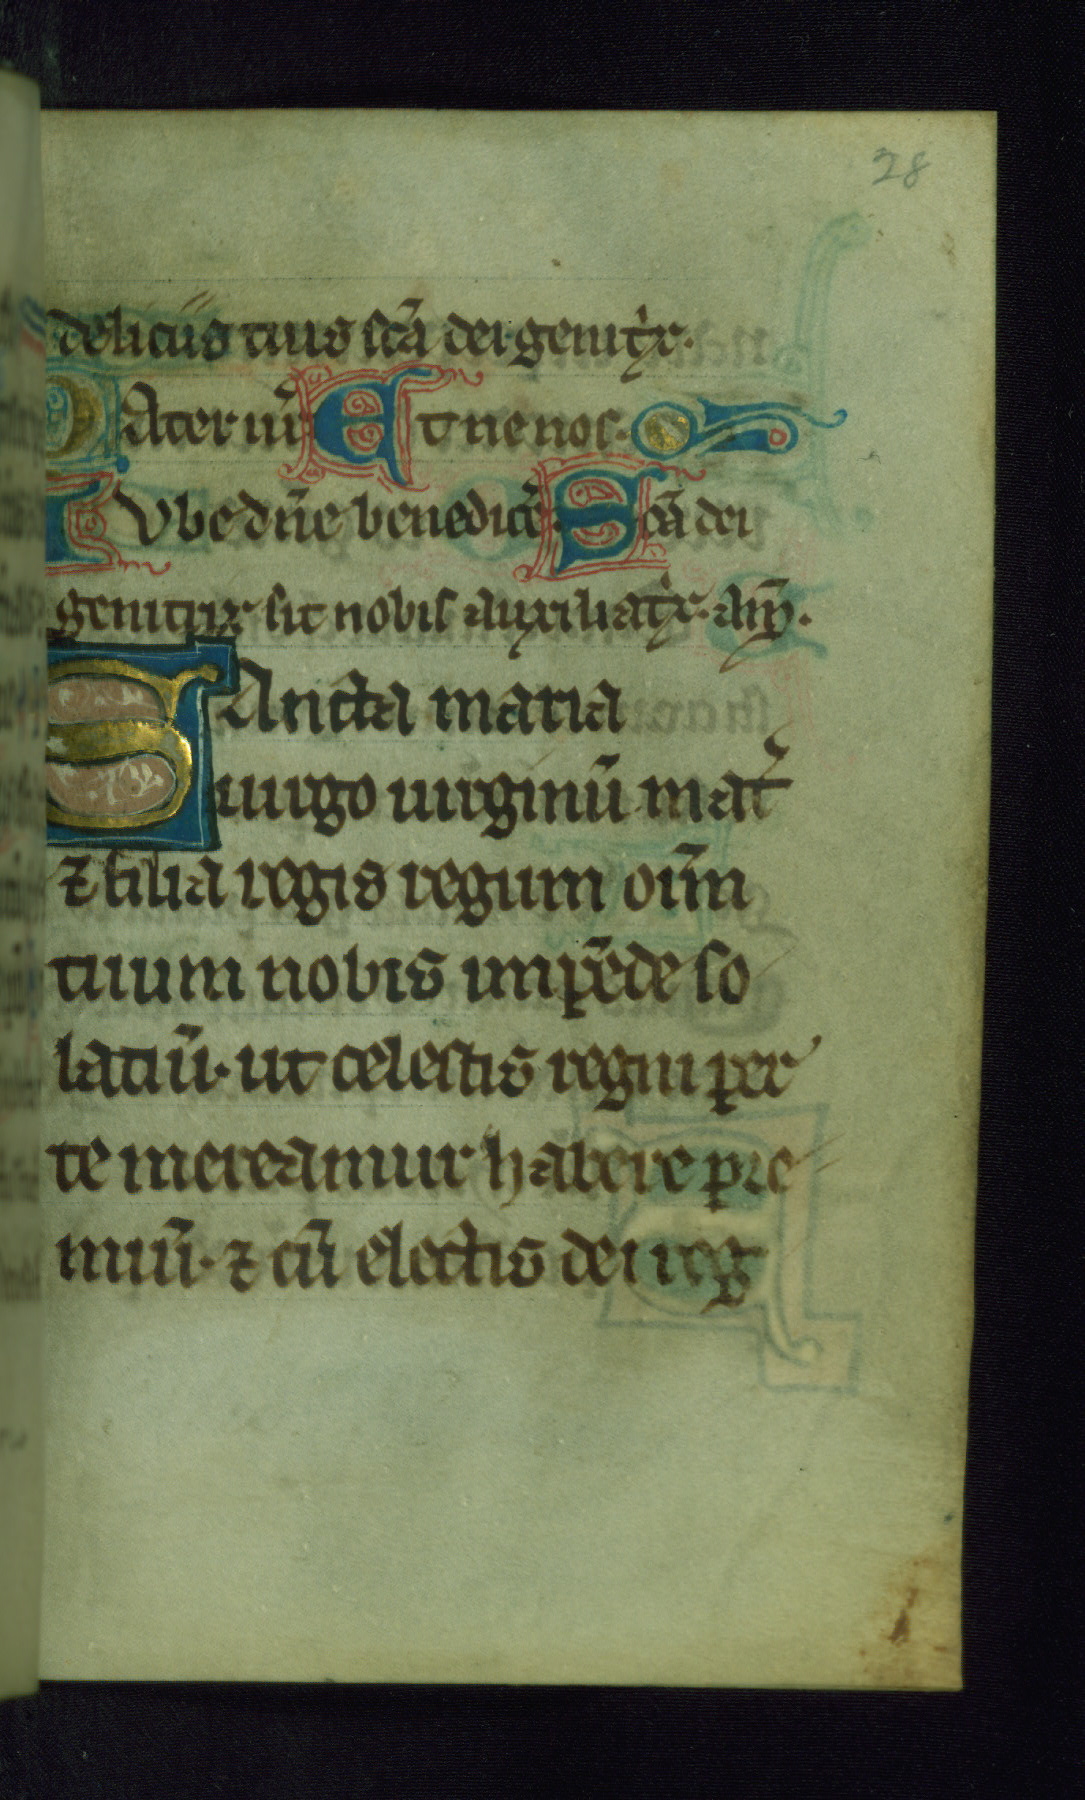 28
deliciis tuis sc̄a dei genitͥx.
PAter nr̄ Et ne nos.
Iube dn̄e benedicē. Sc̄a dei
genitrix sit nobis auxiliatͥx. am̄.
SAncta maria
uirgo uirginū mat̾
⁊ filia regis regum om̄
tuum nobis impēde so
latiū. ut celestis regni per
te mereamur habere pre
miū. ⁊ cū electis dei reg